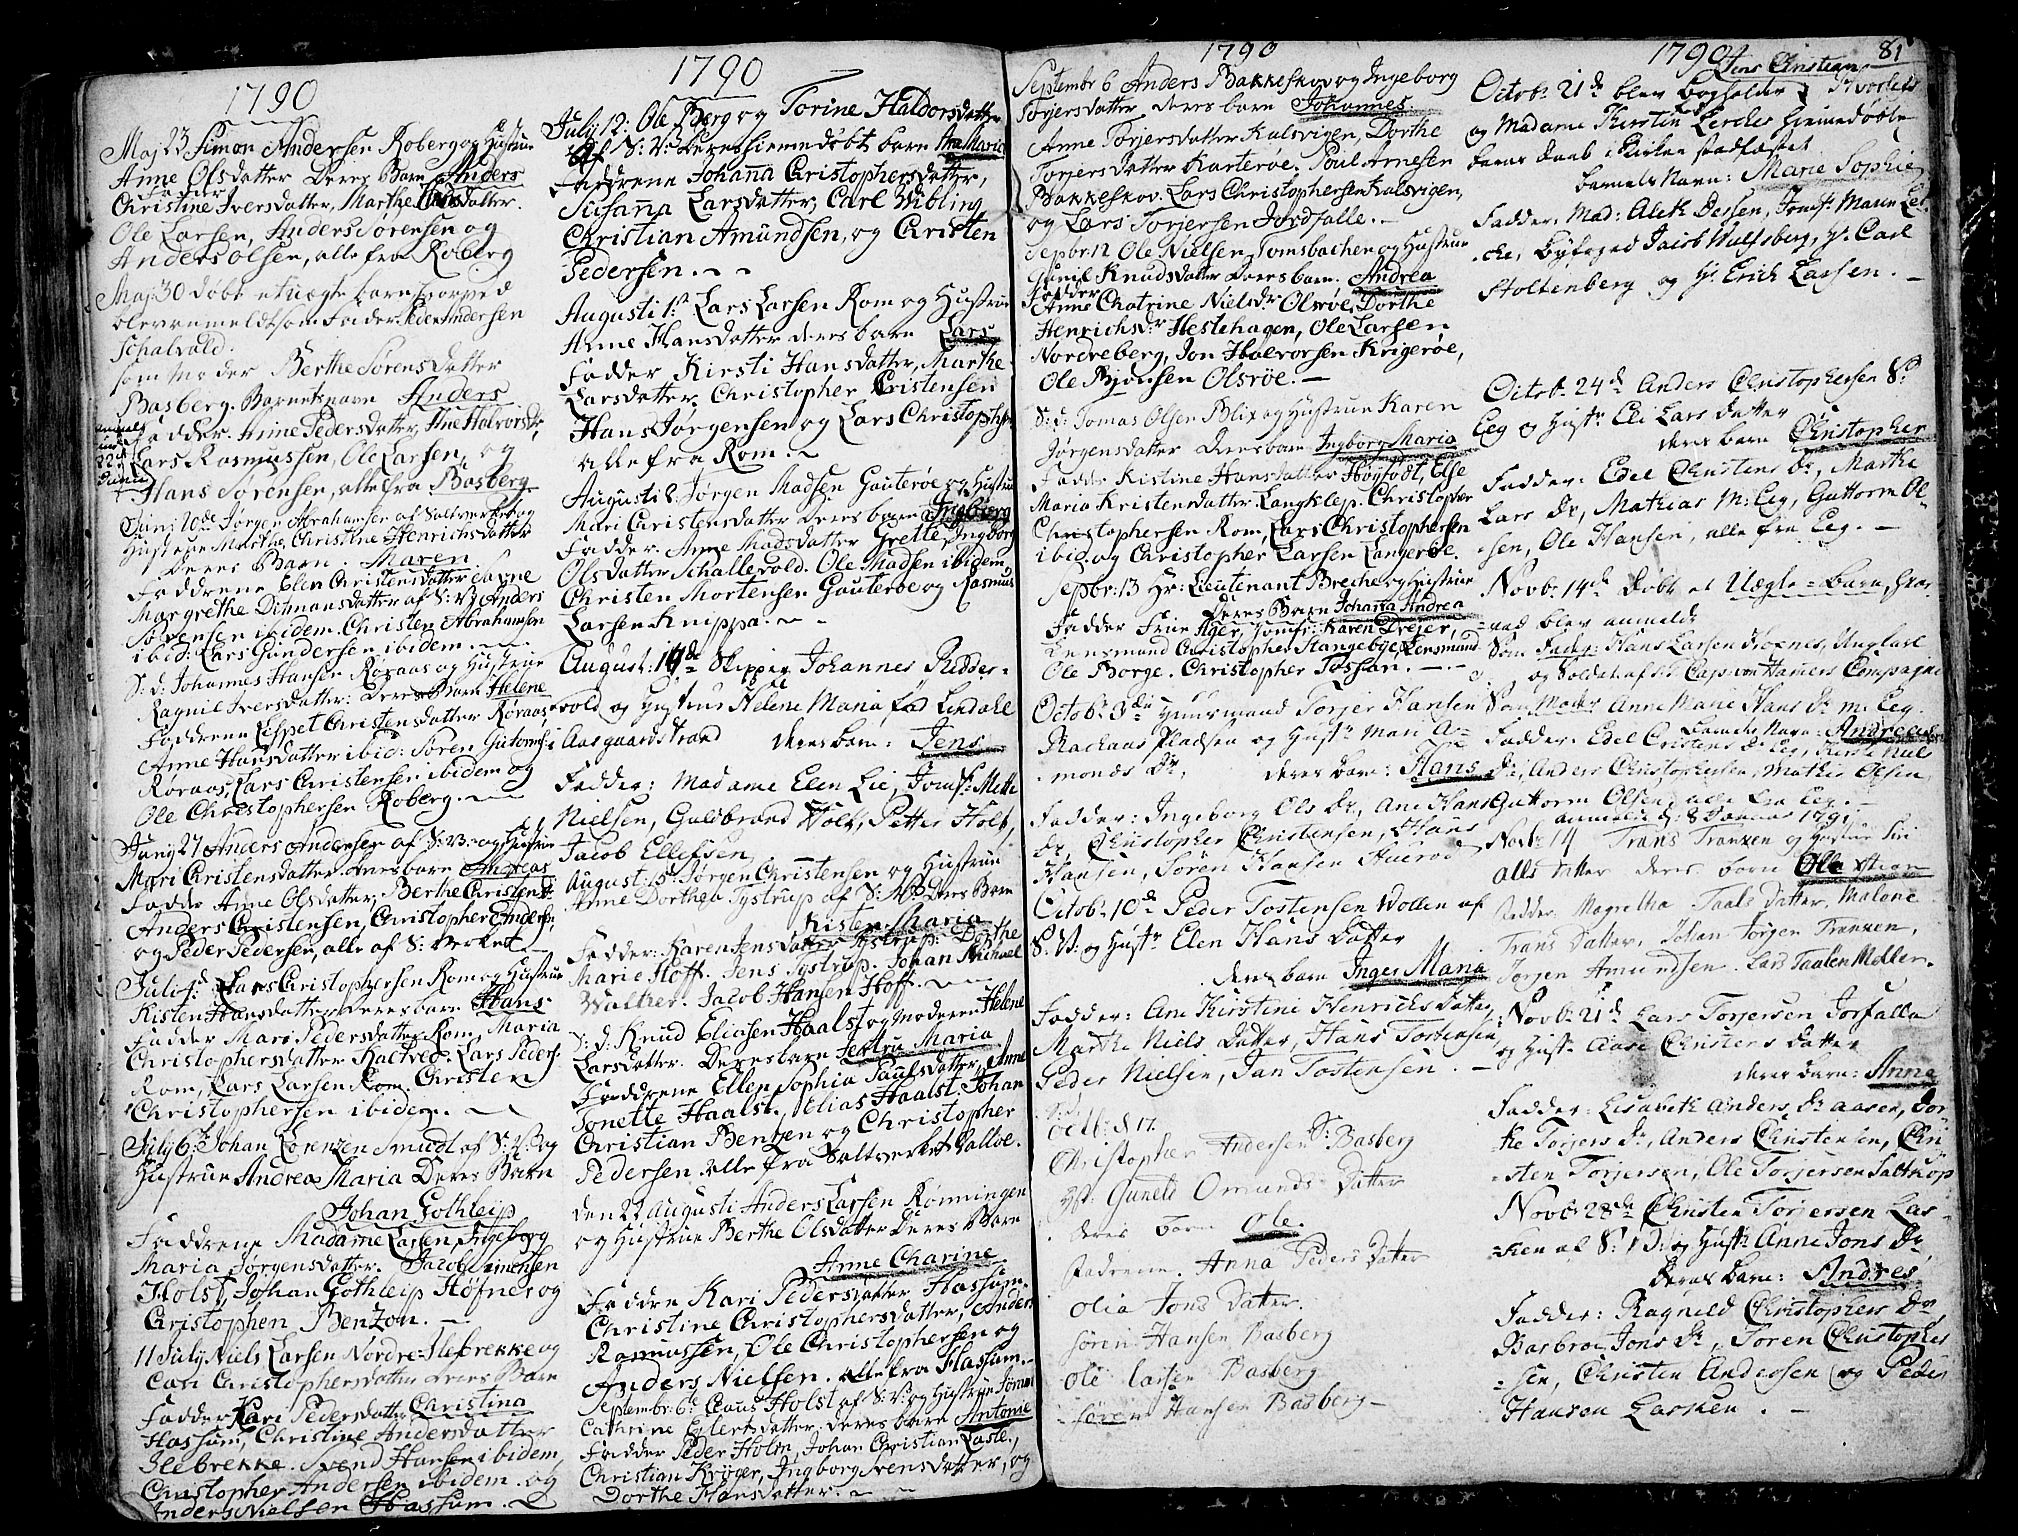 1790
Maj 23 Simon Andersen Roberg og Hustrue
Anne Olsdatter Deres Barn Anders
Fadder
Christine Iversdatter, Marthe Larsdatter.
Ole Larsen, Anders Sørensen og
Anders Olsen, alle fra Roberg
Maj 30 døbt et uægte barn hvorved
blev anmeldt som Fader Peder Andersen
Schalvold.
som Moder Berthe Sørensdatter
Basberg. Barnets navn Anders
Fadder. Anne Pedersdatter, Ane Halvorsdr,
Lars Rasmussen, Ole Larsen, og
Hans Sørensen, alle fra Basberg
Junj 20de Jørgen Abrahamsen af Saltverket og
Hustrue Marthe Christine Henrichsdatter
Deres Barn. Maren
Faddrene Elen Christensdatter
Margrethe Ditmansdatter af S: V: Anders
Sørensen ibidem. Christen Abrahamsen
ibid: Lars Gundersen ibidem.
S: d: Johannes Hansen Røraas og Hustrue
Ragnil Iversdatter: Deres Barn Helene
Faddrene Espet Christensdatter Røraas
Anne Hansdatter ibid: Søren Gutormsen
Røraas, Lars Christensen ibidem og
Ole Christophersen Roberg.
Junj 27 Anders Andersen af S: V. og Hustrue
Mari Christensdatter deres barn Andreas
Fadder Anne Olsdatter, Berthe Christensdr
Anders Christensen, Christopher Andersen,
og Peder Pedersen, alle af S: Verket
Juli 4 d: Lars Christophersen Rom og Hustrue
Kisten Hansdatter deres barn Hans
Fadder Mari Pedersdatter Rom, Maria
Christophersdatter, Lars Peders:
Rom, Lars Larsen Rom. Christen
Christophersen ibidem.
July 6 Johan Lorenzen Smidt af S: V: og
Hustrue Andrea Maria Deres Barn
Johan Gothleip
Faddrene Madame Larsen, Ingeborg
Maria Jørgensdatter. Jacob
Holst, Johan Gothleip Høfner og
Christophen Benzon.
11 July Niels Larsen Nordre Ilebrekke og
Cari Christophersdatter deres Barn
Fadder Kari Pedersdatter Christina
Hassum, Christine Andersdatter
Ilebrekke. Svend Hansen ibidem,
Christopher Andersen ibidem. og
Anders Nielsen Hassum.
1790
July 12: Ole Berg og Torine Haldorsdatter
af S: V: Deres hiemmedøbt barn Ane Maria
Faddrene Johanna Christophersdatter,
Susanna Larsdatter, Carl Wibling
Christian Amundsen, og Christen
Pedersen.
Augusti 1 Lars Larsen Rom og Hustrue
Anne Hansdatter deres barn Lars
Fadder Kirsti Hansdatter, Marthe
Larsdatter, Christopher Cristensen
Hans Jørgensen og Lars Christophersen
alle fra Rom.
Augusti 8 Jørgen Madsen Gauterøe og Hustrue
Mari Christensdatter deres barn Ingborg
Fadder. Anne Madsdatter Grette, Ingborg
Olsdatter Schallevold. Ole Madsen ibidem
Christen Mortensen Gauterøe og Rasmus
Larsen Knippa.
August: Skipper Johannes Ridder-
vold og Hustrue Helene Maria fød Lindahl
Aasgaardstrand deres barn: Jens
Fadder: Madame Elen Lie, Jomf: Mette
Nielsen, Guldbrand Holt, Petter Holt,
Jacob Ellefsen
August: 15 Jørgen Christensen og Hustrue
Anne Dorthea Tystrup af S: V: Deres Barn
Kisten Maria
Fadder: Karen Jensdatter Tystrup. Dorthe
Marie Hoff. Jens Tystrup. Johan Michael
Walther. Jacob Hansen Hoff.
S: d: Knud Eliasen Haalst og Moderen Helene
Larsdatter. Deres barn Jertru Maria
Faddrene Ellen Sophia Paulsdatter, Anne
Tonette Haalst. Elias Haalst. Johan
Christian Bentzen og Christopher
Pedersen alle fra Saltverket Valløe.
den 22 Augusti Anders Larsen Rønningen
og Hustrue Berthe Olsdatter Deres Barn
Anne Charine
Faddre Kari Pedersdatter Hassum.
Christine Christophersdatter, Anders
Rasmussen, Ole Christophersen og
Anders Nielsen. alle fra Hassum.
Septembr. 6: Claus Holst af S: V: og Hustrue
Cathrine Eylertsdatter deres barn Antonie
Fadder Peder Holm, Johan Christian Lasle,
Christian Krøger, Ingborg Svensdatter, og
Dorthe Hansdatter.
1790
Septembr 6 Anders Bakkeskov og Ingeborg
Torjersdatter deres barn Johannes
Anne Torjersdatter Kalsvigen, Dorthe
Torjersdatter Karterøe. Poul Arnesen
Bakkeskov. Lars Christophersen Kalsvigen,
og Lars Torjersen Jordfalle.
Sepbr 12 Ole Nielsen Tomsbachen og Hustrue
Gunil Knudsdatter Deres barn. Andrea
Fadder
Anne Chatrine Nielsdr Olsrøe, Dorthe
Henrichsdr Hestehagen, Ole Larsen
Nordreberg, Jon Halvorsen Krigerøe,
Ole Bjønsen Olsrøe.
S: d: Tomas Olsen Blix og Hustrue Karen
Jørgensdatter Deres barn Ingborg Maria
Fadde Kistine Hansdatter Høyfødt, Else
Maria Kristensdatter Langklep. Christopher
Christophersen Rom, Lars Christophersen
ibid. og Christopher Larsen Langerøe.
Sepbr: 13 Hr: Lieutenant Brecher og Hustrue
Deres Barn Johana Andrea
Fadder Frue Ager, Jomfr: Karen Drejer,
Lensmand Christopher Stangebye, Lensmand
Ole Borge. Christopher Tossan.
Octobr 3die Huusmand Torjer Hansen
Rachaas Pladsen og Hustr Mari A-
monds Dr, deres barn: Hans
Fadder: Ingeborg Ols Dr, Ane Hans
Dr, Christopher Christensen, Hans
Hansen, Søren Hansen
Octobr 10de Peder Tostensen Wollen af
S. V: og Hustr Elen Hans Datter
deres barn Inger Maria
Fadder: Ane Kirstine Henrichs Datter,
Marthe Niels Datter, Hans Tostensen,
Peder Nielsen, Jan Tostensen.
Octb: d 17.
Christopher Andersen S: Basberg
Hst: Gunild Omunds Datter
deres barn Ole.
Fadrene. Anna Peders Datter
Olia Jons Datter.
Søren Hansen Basberg
Ole Larsen Basberg
Søren Hansen Basberg
1790
81
Jens Christian
Octobr 21de blev Bogholder Qvorleb
og Madame Kirstin Lerches hiemmedøbte
barns daab i Kirken stadfæstet
barnets Navn: Marie Sophie
Fadder: Mad: Alet Dessen, Jomfr: Maren Ler-
che, Byfoged Jacob Wulfsberg, Hr. Carl
Stoltenberg og Hr: Erich Larsen.
Octobr 24de Anders Christophersen S:
Eeg og Hustr Eli Lars datter
deres barn Christopher
Fadder: Edel Christens Dr, Marthe
Lars Dr, Mathias M: Eeg, Guttorm Ol-
sen, Ole Hansen, alle fra Eeg.
Novbr 14de døbt et Uægte-Barn, hvor-
ved blev anmeldt
Som Fader: Hans Larsen Hoenes, Ungkarl
og Soldat af Hr Cap: von Hamers Compagnie
Som Moder Anne Marie Hans Dr M: Eeg.
Barnets Navn: Andreas
Fadder: Edel Cristens Dr Eeg, Karen Niels
Dr, Anders Christophersen, Mathis Olsen,
Guttorm Olsen, alle fra Eeg.
anmeldt d: 8 Januar 1791
Novbr 14 Frans Franzen og Hustrue Siri
deres barn Ole Stian
Fadder: Magretha Taals Datter, Malene
Frans Datter, Johan Jørgen Franzen,
Jørgen Amundsen. Lars Taalen Møller.
Novbr 21de Lars Torjersen Jorfalle
og Hustr Aase Christens Datter
deres barn: Anna
Fadder: Lisabeth Anders Dr Aasen, Dor-
the Torjers Dr, Anders Christensen, Chri-
sten Torjersen, Ole Torjersen Saltkop
Novbr 28de Christen Torjersen Las-
ken af S: V: og Hustr Anne Jons Dr
deres barn: Andres
Fadder: Ragnild Christophers Dr
Barbroe Jons Dr, Søren Christopher-
sen, Christen Andersen og Peder
Hansen Lasken.